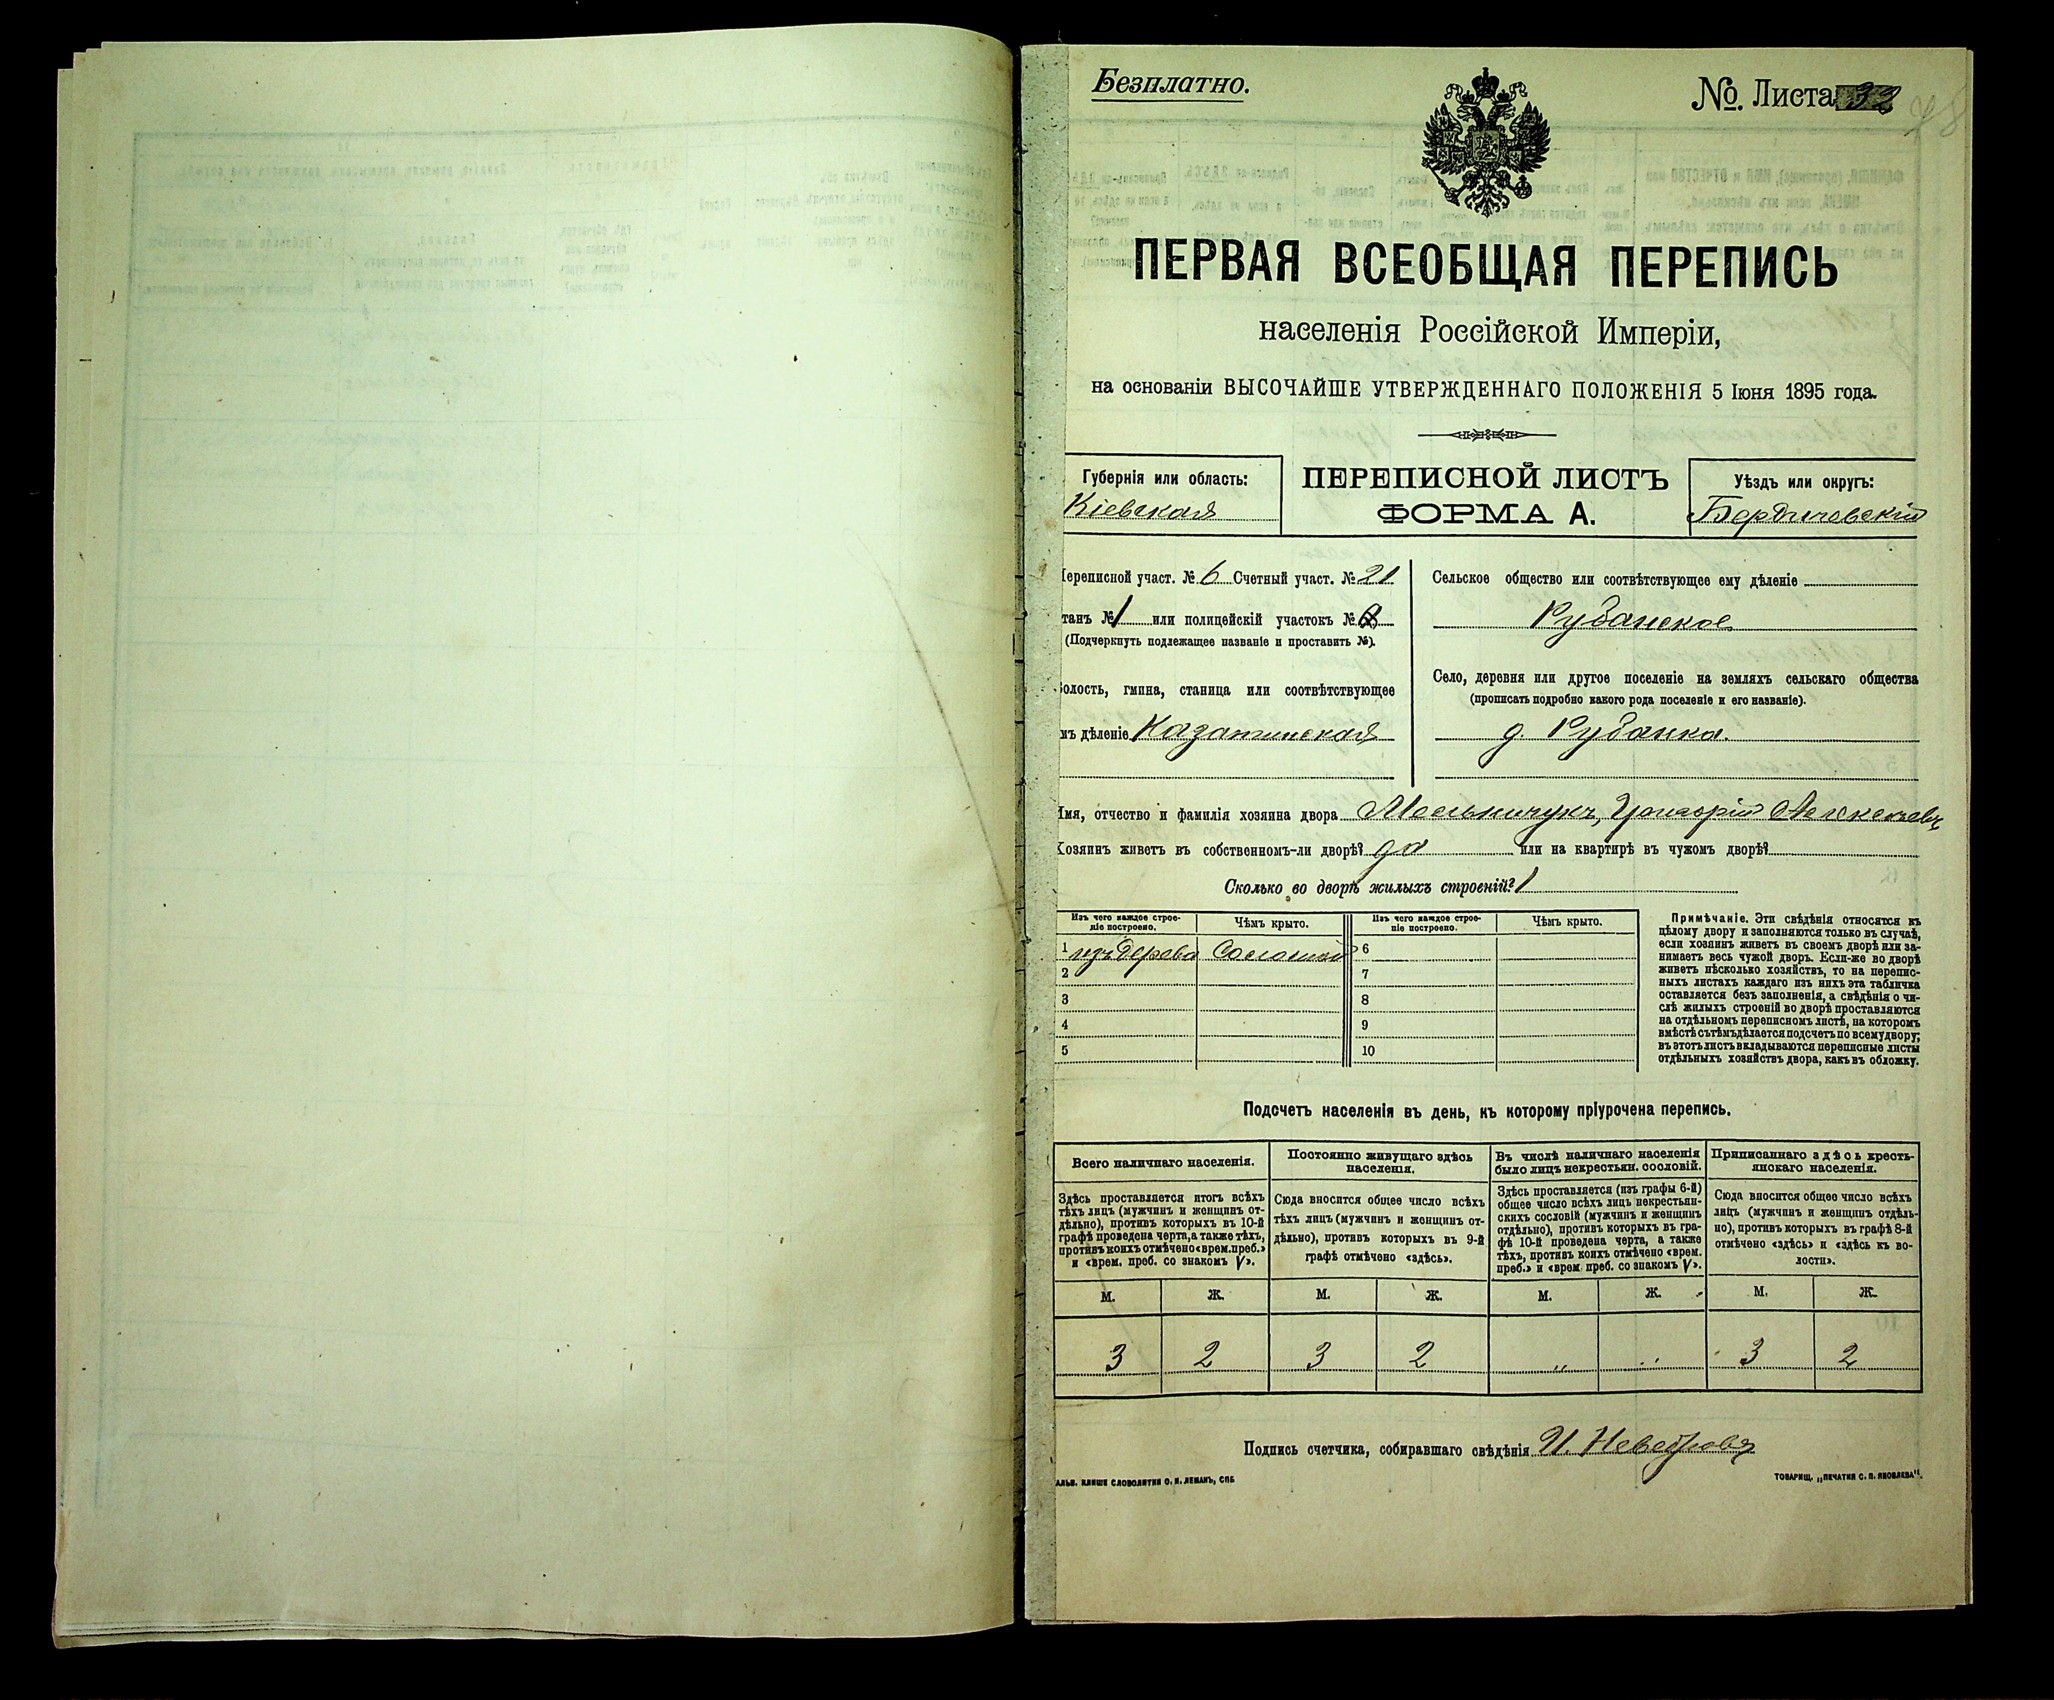 Безплатно.
№. Листа 32
78
ПЕРВАЯ ВСЕОБЩАЯ ПЕРЕПИСЬ
населенія Россійской Имперіи,
на основаніи ВЫСОЧАЙШЕ УТВЕРЖДЕННАГО ПОЛОЖЕНІЯ 5 Іюня 1895 года.
Губернія или область:
Кіевская
ПЕРЕПИСНОЙ ЛИСТЪ
ФОРМА А.
Уѣздъ или округъ:
Бердичевскій
Переписной участ. № 6 Счетный участ. № 21
танъ № 1 или полицейскій участокъ №
(Подчеркнуть подлежащее названіе и проставить №).
олость, гмина, станица или соотвѣтствующее
мъ дѣленіе Казатинская
Сельское общество или соотвѣтствующее ему дѣленіе
Рубанское
Село, деревня или другое поселеніе на земляхъ сельскаго общества
(прописать подробно какого рода поселеніе и его названіе).
д. Рубанка.
Имя, отчество и фамилія хозяина двора Мельничукъ, Григорій Алексѣевъ
Хозяинъ живетъ въ собственномъ-ли дворѣ? да или на квартирѣ въ чужомъ дворѣ?
Сколько во дворѣ жилыхъ строеній? 1
Изъ чего каждое строе-
ніе построено.
Чѣмъ крыто.
Изъ чего каждое строе-
ніе построено.
Чѣмъ крыто.
1 изъ дерева Соломой 6
2 7
3 8
4 9
5 10
Примѣчаніе. Эти свѣдѣнія относятся къ
цѣлому двору и заполняются только въ случаѣ,
если хозяинъ живетъ въ своемъ дворѣ или за-
нимаетъ весь чужой дворъ. Если-же во дворѣ
живетъ нѣсколько хозяйствъ, то на перепис-
ныхъ листахъ каждаго изъ нихъ эта табличка
оставляется безъ заполненія, а свѣдѣнія о чи-
слѣ жилыхъ строеній во дворѣ проставляются
на отдѣльномъ переписномъ листѣ, на которомъ
вмѣстѣ съ тѣмъ дѣлается подсчетъ по всему двору;
въ этотъ листъ вкладываются переписные листы
отдѣльныхъ хозяйствъ двора, какъ въ обложку.
Подсчетъ населенія въ день, къ которому пріурочена перепись.
Всего наличнаго населенія.
Здѣсь проставляется итогъ всѣхъ
тѣхъ лицъ (мужчинъ и женщинъ от-
дѣльно), противъ которыхъ въ 10-й
графѣ проведена черта, а также тѣхъ,
противъ коихъ отмѣчено «врем. преб.»
и «врем. преб. со знакомъ V».
Постоянно живущаго здѣсь
населенія.
Сюда вносится общее число всѣхъ
тѣхъ лицъ (мужчинъ и женщинъ от-
дѣльно), противъ которыхъ въ 9-й
графѣ отмѣчено «здѣсь».
Въ числѣ наличнаго населенія
было лицъ некрестьян. сословій.
Здѣсь проставляется (изъ графы 6-й)
общее число всѣхъ лицъ некрестьян-
скихъ сословій (мужчинъ и женщинъ
отдѣльно), противъ которыхъ въ гра-
фѣ 10-й проведена черта, а также
тѣхъ, противъ коихъ отмѣчено «врем.
преб.» и «врем преб. со знакомъ V».
Приписаннаго здѣсь кресть-
янскаго населенія.
Сюда вносится общее число всѣхъ
лицъ (мужчинъ и женщинъ отдѣль-
но), противъ которыхъ въ графѣ 8-й
отмѣчено «здѣсь» и «здѣсь къ во-
лости».
М. Ж. М. Ж. М. Ж. М. Ж.
3 2 3 2 „ „ 3 2
Подпись счетчика, собиравшаго свѣдѣнія
АЛЬВ. КЛИШЕ СЛОВОЛИТНИ О. И. ЛЕМАНЪ, СПБ
ТОВАРИЩ. „ПЕЧАТНЯ С. П. ЯКОВЛЕВА".